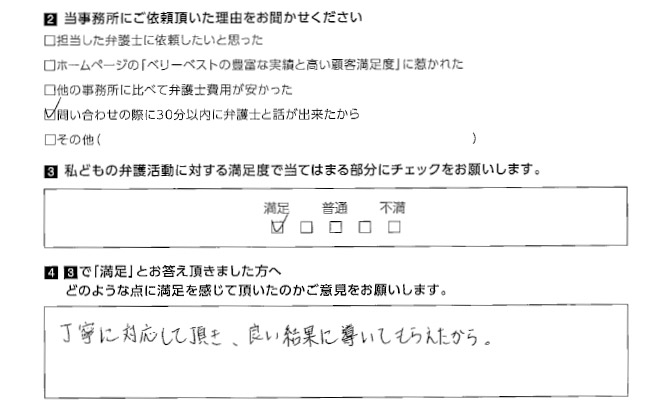 2 当事務所にご依頼頂いた理由をお聞かせください
□担当した弁護士に依頼したいと思った
□ホームページの「ベリーベストの豊富な実績と高い顧客満足度」に惹かれた
□他の事務所に比べて弁護士費用が安かった
☑問い合わせの際に30分以内に弁護士と話が出来たから
□その他( )
3 私どもの弁護活動に対する満足度で当てはまる部分にチェックをお願いします。
満足 普通 不満
☑ □ □ □ □
4 3で「満足」とお答え頂きました方へ
どのような点に満足を感じて頂いたのかご意見をお願いします。
丁寧に対応して頂き、良い結果に導いてもらえたから。